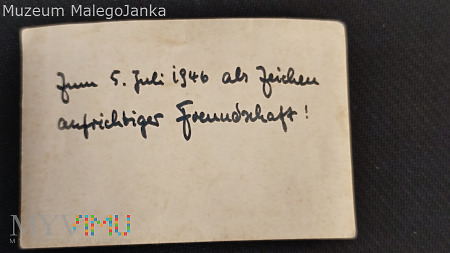 Muzeum MalegoJanka
Zum 5. Juli 1946 als Zeichen
aufrichtiger Freundschaft!
MYVIMU